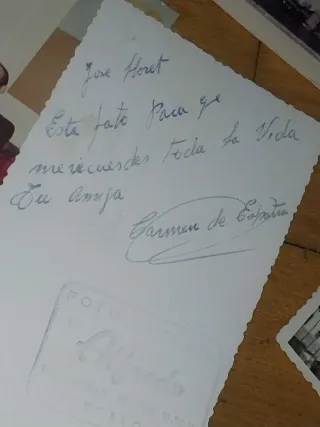 Jose Floret
Esta foto Para qe
merecuerdes toda la Vida
Tu amiga
Carmen de
FOTO
Alfredo